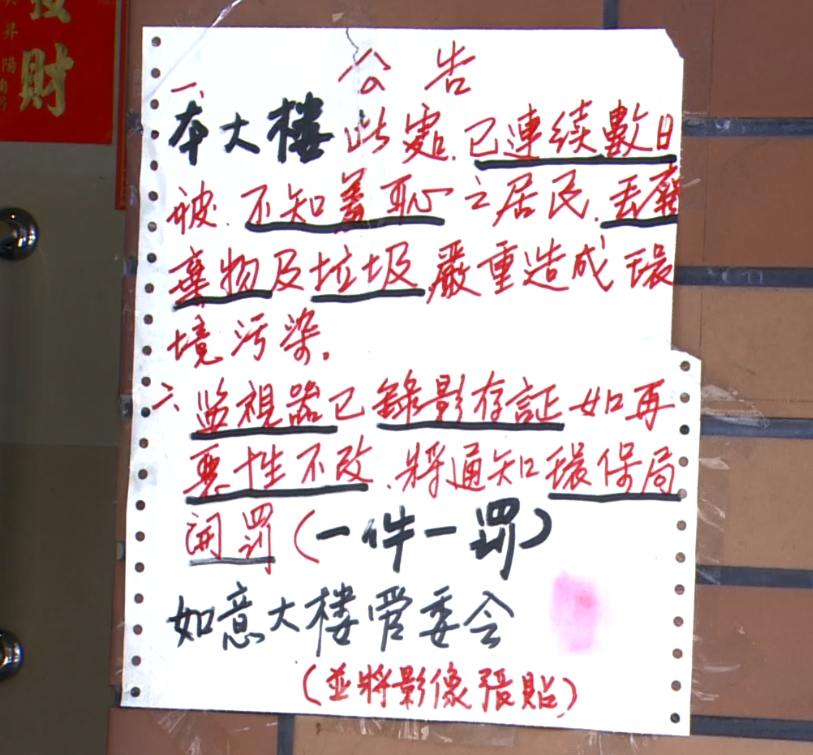 財
公告
一、
本大楼此處.已連續數日
被.不知羞恥之居民.丟廢
棄物及垃圾嚴重造成環
境污染。
二、监視器已錄影存証如再
惡性不改.將通知環保局
開罰(一件一罰)
如意大楼管委会
(並將影像張貼)